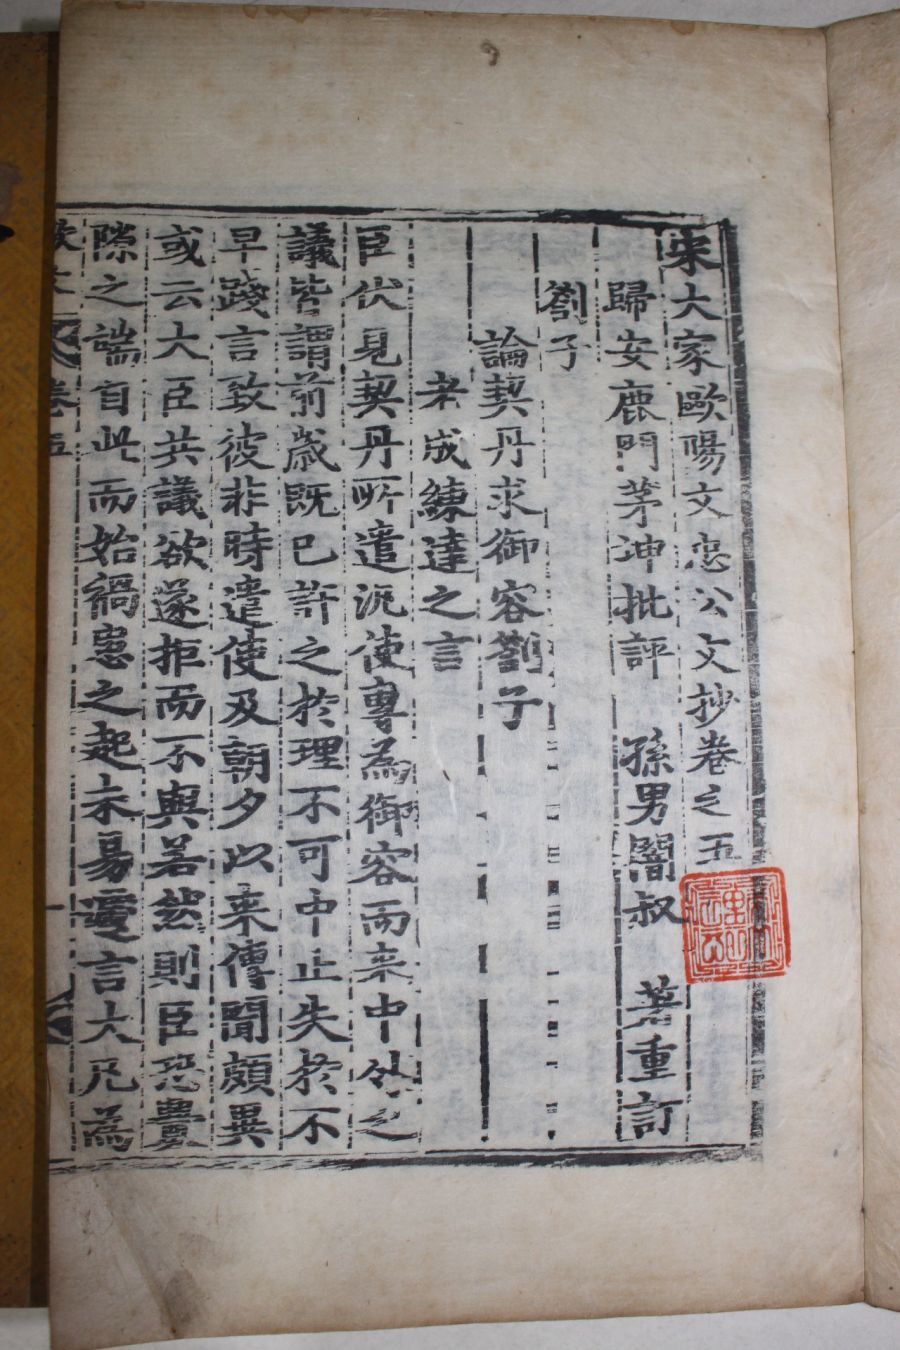 宋大家歐陽文忠公文抄卷之五
歸安鹿門茅坤批評 孫男闇叔 著重訂
劄子
論契丹求御容劄子
老成練達之言
臣伏見契丹所遣汎使專為御容而來中外之
議皆謂前歲既已許之於理不可中止失於不
早踐言致彼非時遣使及朝夕以來傳聞頗異
或云大臣共議欲遂拒而不與若然則臣恐釁
隙之端自此而始禍患之起未易遽言大凡為
卷五